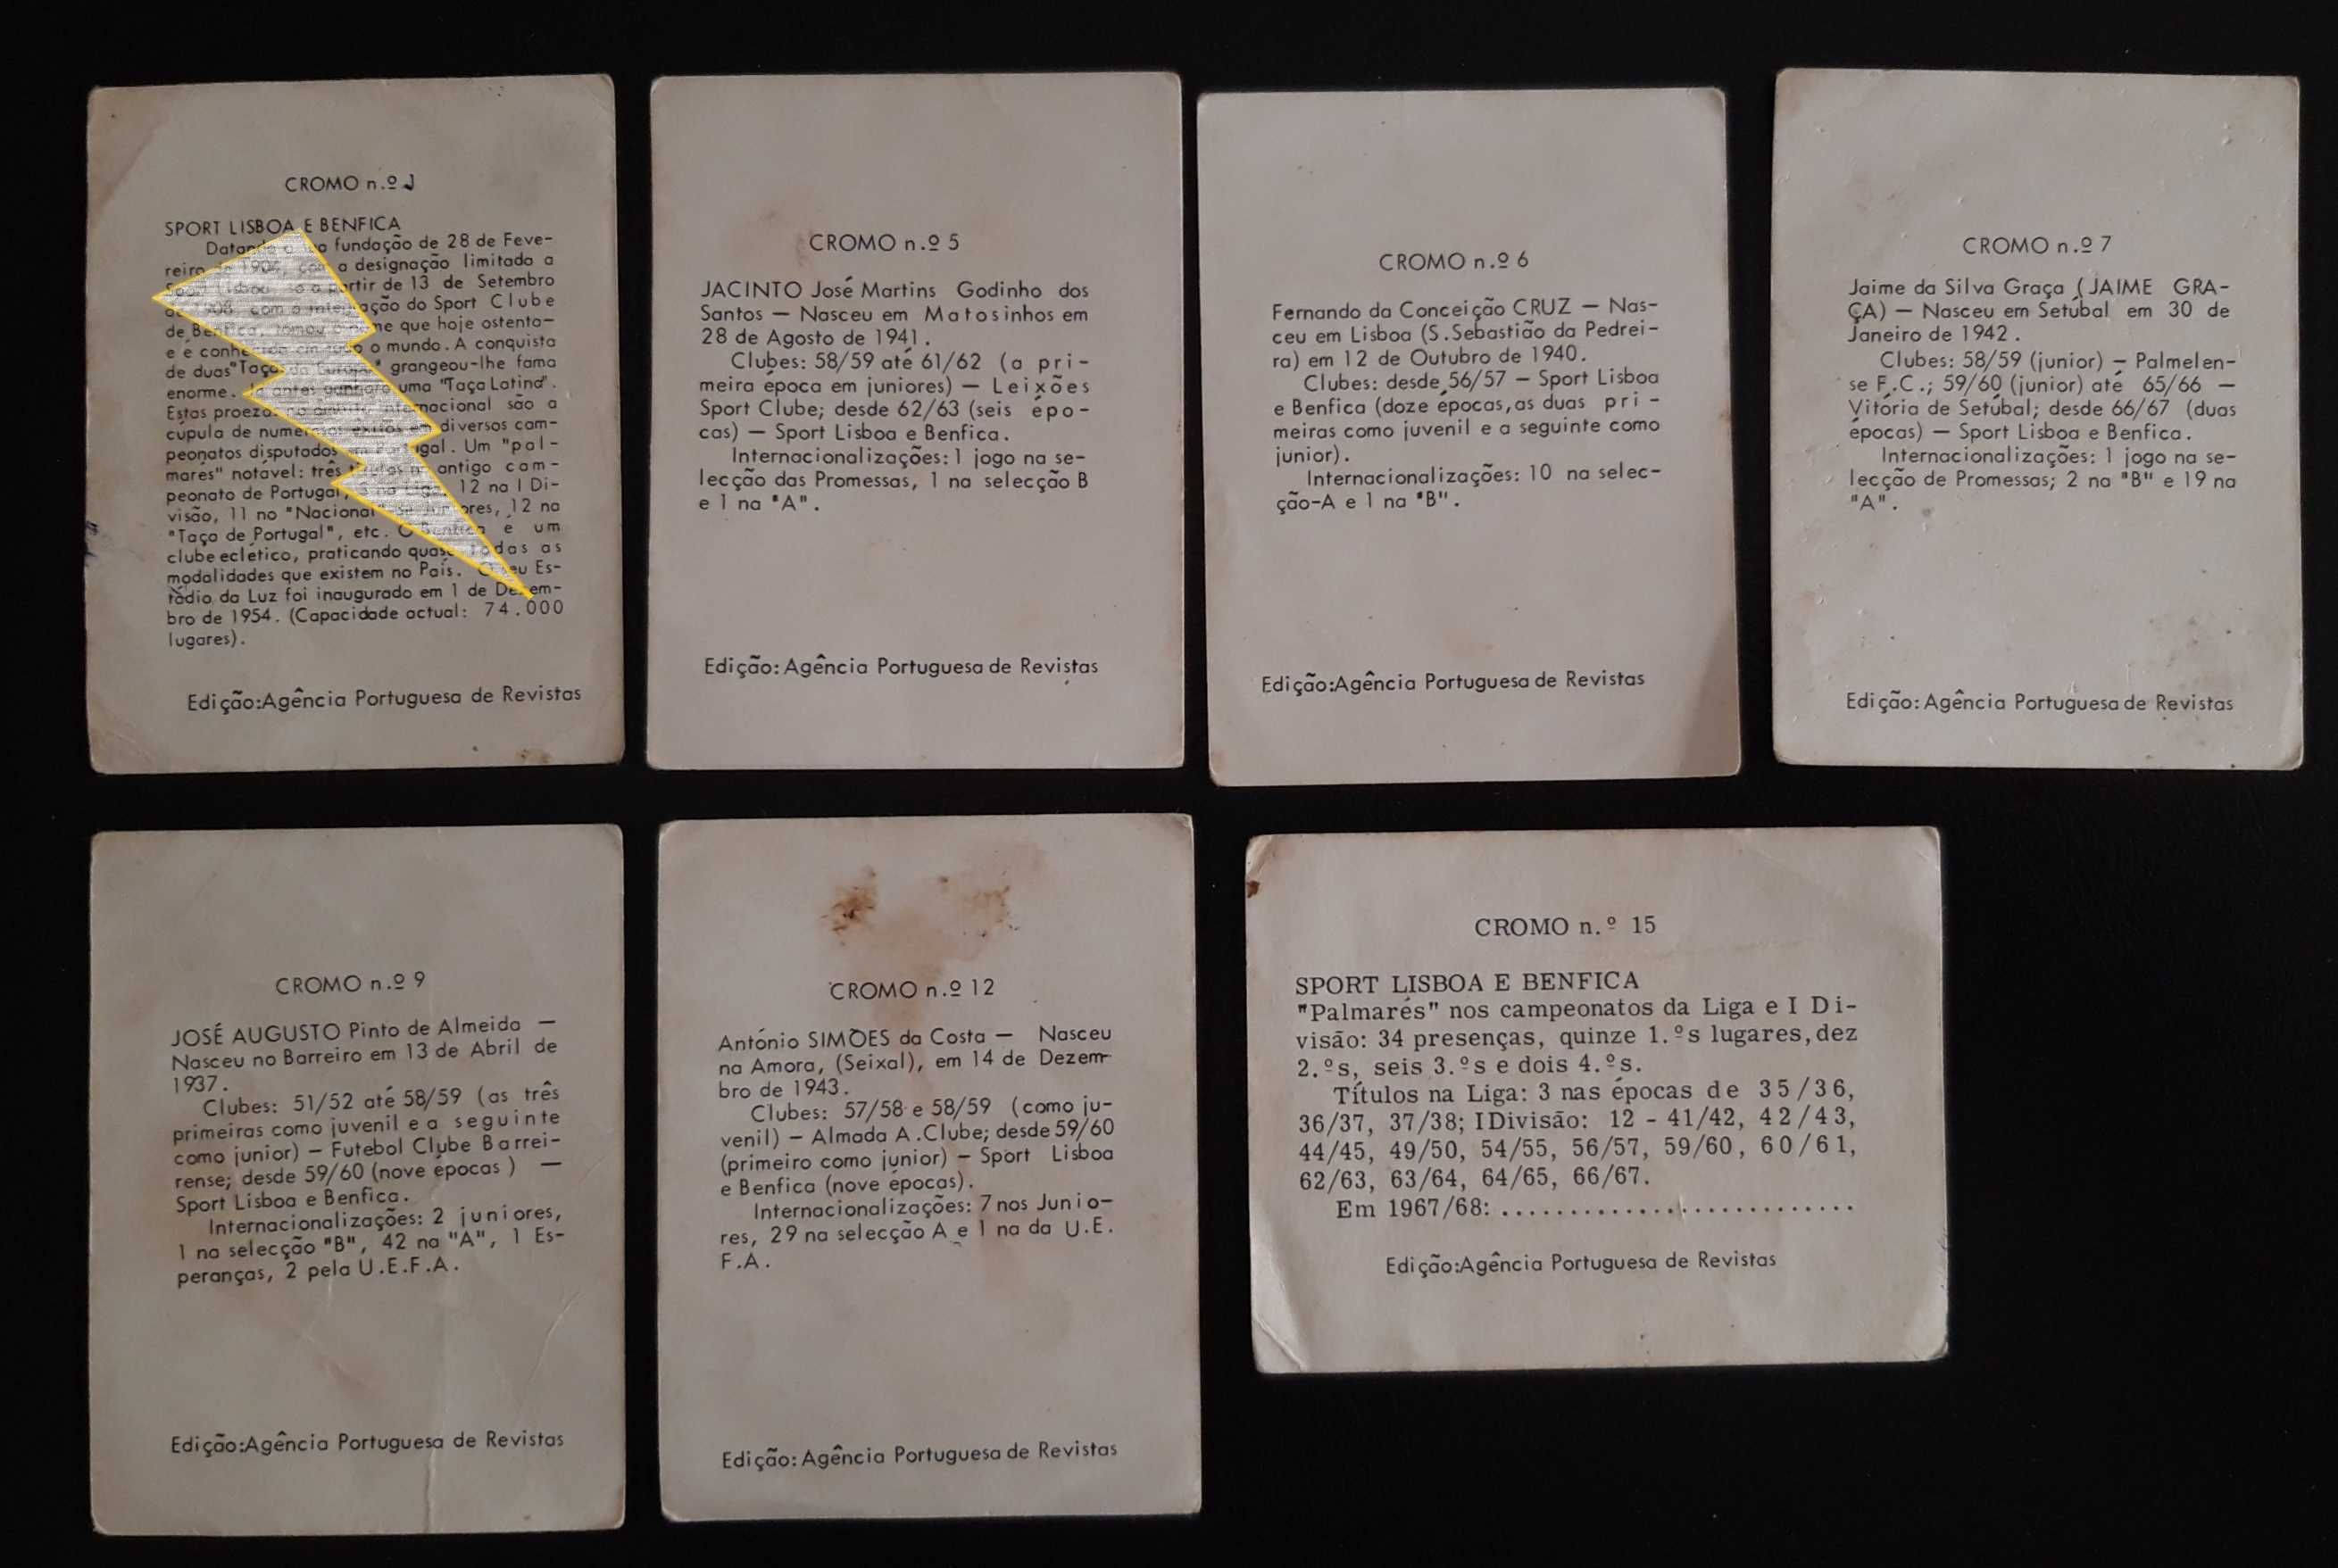 CROMO n.º 1
SPORT LISBOA E BENFICA
fundação de 28 de Feve-
a designação limitada a
a partir de 13 de Setembro
do Sport Clube
de que hoje ostenta-
e é o mundo. A conquista
de duas "Taça grangeou-lhe fama
enorme. uma "Taça Latina".
Estas são a
cúpula de diversos cam-
peonatos disputados Um "pal-
marés" notável: três antigo cam-
peonato de Portugal, 12 na I Di-
visão, 11 no "Nacional" 12 na
"Taça de Portugal", etc. O é um
clube eclético, praticando quase todas as
modalidades que existem no País. Es-
tádio da Luz foi inaugurado em 1 de Dezem-
bro de 1954. (Capacidade actual: 74.000
lugares).
Edição:Agência Portuguesa de Revistas
CROMO n.º 5
JACINTO José Martins Godinho dos
Santos — Nasceu em Matosinhos em
28 de Agosto de 1941.
Clubes: 58/59 até 61/62 (a pri-
meira época em juniores) — Leixões
Sport Clube; desde 62/63 (seis épo-
cas) — Sport Lisboa e Benfica.
Internacionalizações: 1 jogo na se-
lecção das Promessas, 1 na selecção B
e 1 na "A".
Edição: Agência Portuguesa de Revistas
CROMO n.º 6
Fernando da Conceição CRUZ — Nas-
ceu em Lisboa (S.Sebastião da Pedrei-
ra) em 12 de Outubro de 1940.
Clubes: desde 56/57 — Sport Lisboa
e Benfica (doze épocas,as duas pri-
meiras como juvenil e a seguinte como
junior).
Internacionalizações: 10 na selec-
ção-A e 1 na "B".
Edição:Agência Portuguesa de Revistas
CROMO n.º 7
Jaime da Silva Graça (JAIME GRA-
ÇA) — Nasceu em Setúbal em 30 de
Janeiro de 1942.
Clubes: 58/59 (junior) — Palmelen-
se F.C.; 59/60 (junior) até 65/66 —
Vitória de Setúbal; desde 66/67 (duas
épocas) — Sport Lisboa e Benfica.
Internacionalizações: 1 jogo na se-
lecção de Promessas; 2 na "B" e 19 na
"A".
Edição: Agência Portuguesa de Revistas
CROMO n.º 9
JOSÉ AUGUSTO Pinto de Almeida —
Nasceu no Barreiro em 13 de Abril de
1937.
Clubes: 51/52 até 58/59 (as três
primeiras como juvenil e a seguinte
como junior) — Futebol Clube Barrei-
rense; desde 59/60 (nove épocas) —
Sport Lisboa e Benfica.
Internacionalizações: 2 juniores,
1 na selecção "B", 42 na "A", 1 Es-
peranças, 2 pela U.E.F.A.
Edição:Agência Portuguesa de Revistas
CROMO n.º 12
António SIMÕES da Costa — Nasceu
na Amora, (Seixal), em 14 de Dezem-
bro de 1943.
Clubes: 57/58 e 58/59 (como ju-
venil) — Almada A.Clube; desde 59/60
(primeiro como junior) — Sport Lisboa
e Benfica (nove épocas).
Internacionalizações: 7 nos Junio-
res, 29 na selecção A e 1 na da U.E.
F.A.
Edição: Agência Portuguesa de Revistas
CROMO n.º 15
SPORT LISBOA E BENFICA
"Palmarés" nos campeonatos da Liga e I Di-
visão: 34 presenças, quinze 1.ºs lugares,dez
2.ºs, seis 3.ºs e dois 4.ºs.
Títulos na Liga: 3 nas épocas de 35/36,
36/37, 37/38; I Divisão: 12 - 41/42, 42/43,
44/45, 49/50, 54/55, 56/57, 59/60, 60/61,
62/63, 63/64, 64/65, 66/67.
Em 1967/68: ..........................
Edição:Agência Portuguesa de Revistas